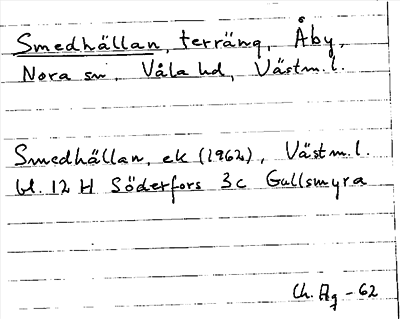 Smedhällan, terräng, Åby,
Nora sn, Våla hd, Västm. l.
Smedhällan, ek (1962), Västm. l.
bl. 12 H Söderfors 3c Gullsmyra
Ch. Ãg - 62